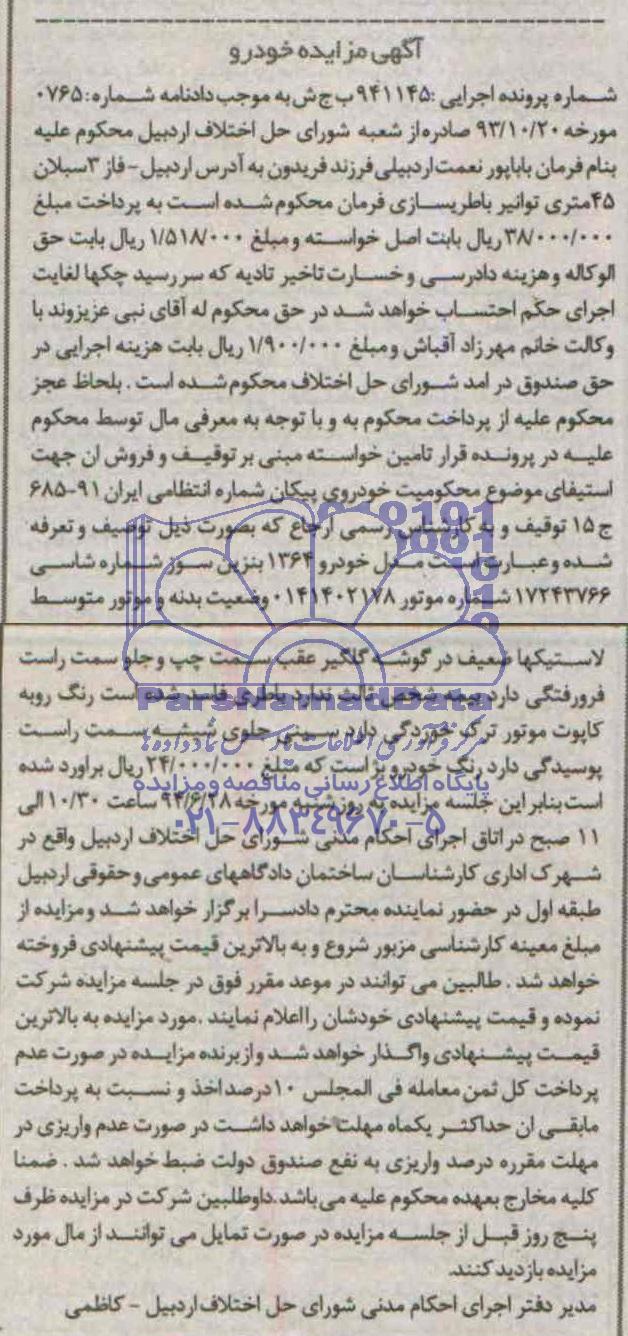 آگهی مزایده خودرو
شماره پرونده اجرایی :۹۴۱۱۴۵ ب ج ش به موجب دادنامه شماره: ۰۷۶۵
مورخه ۹۳/۱۰/۲۰ صادره از شعبه شورای حل اختلاف اردبیل محکوم علیه
بنام فرمان باباپور نعمت اردبیلی فرزند فریدون به آدرس اردبیل - فاز ۳ سبلان
۴۵متری توانیر باطریسازی فرمان محکوم شده است به پرداخت مبلغ
۳۸/۰۰۰/۰۰۰ ریال بابت اصل خواسته و مبلغ ۱/۵۱۸/۰۰۰ ریال بابت حق
الوکاله و هزینه دادرسی و خسارت تاخیر تادیه که سررسید چکها لغایت
اجرای حکم احتساب خواهد شد در حق محکوم له آقای نبی عزیزوند با
وکالت خانم مهرزاد آقباش و مبلغ ۱/۹۰۰/۰۰۰ ریال بابت هزینه اجرایی در
حق صندوق در امد شورای حل اختلاف محکوم شده است . بلحاظ عجز
محکوم علیه از پرداخت محکوم به و با توجه به معرفی مال توسط محکوم
علیه در پرونده قرار تامین خواسته مبنی بر توقیف و فروش ان جهت
استیفای موضوع محکومیت خودروی پیکان شماره انتظامی ایران ۹۱-۶۸۵
ج ۱۵ توقیف و به کارشناس رسمی ارجاع که بصورت ذیل توصیف و تعرفه
شده و عبارت است مدل خودرو ۱۳۶۴ بنزین سوز شماره شاسی
۱۷۲۴۳۷۶۶ شماره موتور ۰۱۴۱۴۰۲۱۷۸ وضعیت بدنه و موتور متوسط
لاستیکها ضعیف در گوشه گلگیر عقب سمت چپ و جلو سمت راست
فرورفتگی دارد بیمه شخص ثالث ندارد باطری فاسد شده است رنگ رویه
کاپوت موتور ترک خوردگی دارد سینی جلوی شیشه سمت راست
پوسیدگی دارد رنگ خودرو بژ است که مبلغ ۲۴/۰۰۰/۰۰۰ ریال براورد شده
است بنابر این جلسه مزایده به روز شنبه مورخه ۹۴/۶/۲۸ ساعت ۱۰/۳۰ الی
۱۱ صبح در اتاق اجرای احکام مدنی شورای حل اختلاف اردبیل واقع در
شهرک اداری کارشناسان ساختمان دادگاههای عمومی و حقوقی اردبیل
طبقه اول در حضور نماینده محترم دادسرا برگزار خواهد شد و مزایده از
مبلغ معینه کارشناسی مزبور شروع و به بالاترین قیمت پیشنهادی فروخته
خواهد شد . طالبین می توانند در موعد مقرر فوق در جلسه مزایده شرکت
نموده و قیمت پیشنهادی خودشان را اعلام نمایند .مورد مزایده به بالاترین
قیمت پیشنهادی واگذار خواهد شد و از برنده مزایده در صورت عدم
پرداخت کل ثمن معامله فی المجلس ۱۰ درصد اخذ و نسبت به پرداخت
مابقی ان حداکثر یکماه مهلت خواهد داشت در صورت عدم واریزی در
مهلت مقرره درصد واریزی به نفع صندوق دولت ضبط خواهد شد . ضمنا
کلیه مخارج بعهده محکوم علیه می باشد.داوطلبین شرکت در مزایده ظرف
پنج روز قبل از جلسه مزایده در صورت تمایل می توانند از مال مورد
مزایده بازدید کنند.
مدیر دفتر اجرای احکام مدنی شورای حل اختلاف اردبیل - کاظمی
ParsNamadData
مرکز فرآوری اطلاعات پارس نماد داده ها
پایگاه اطلاع رسانی مناقصه و مزایده
۰۲۱-۸۸۳۴۹۶۷۰-۵